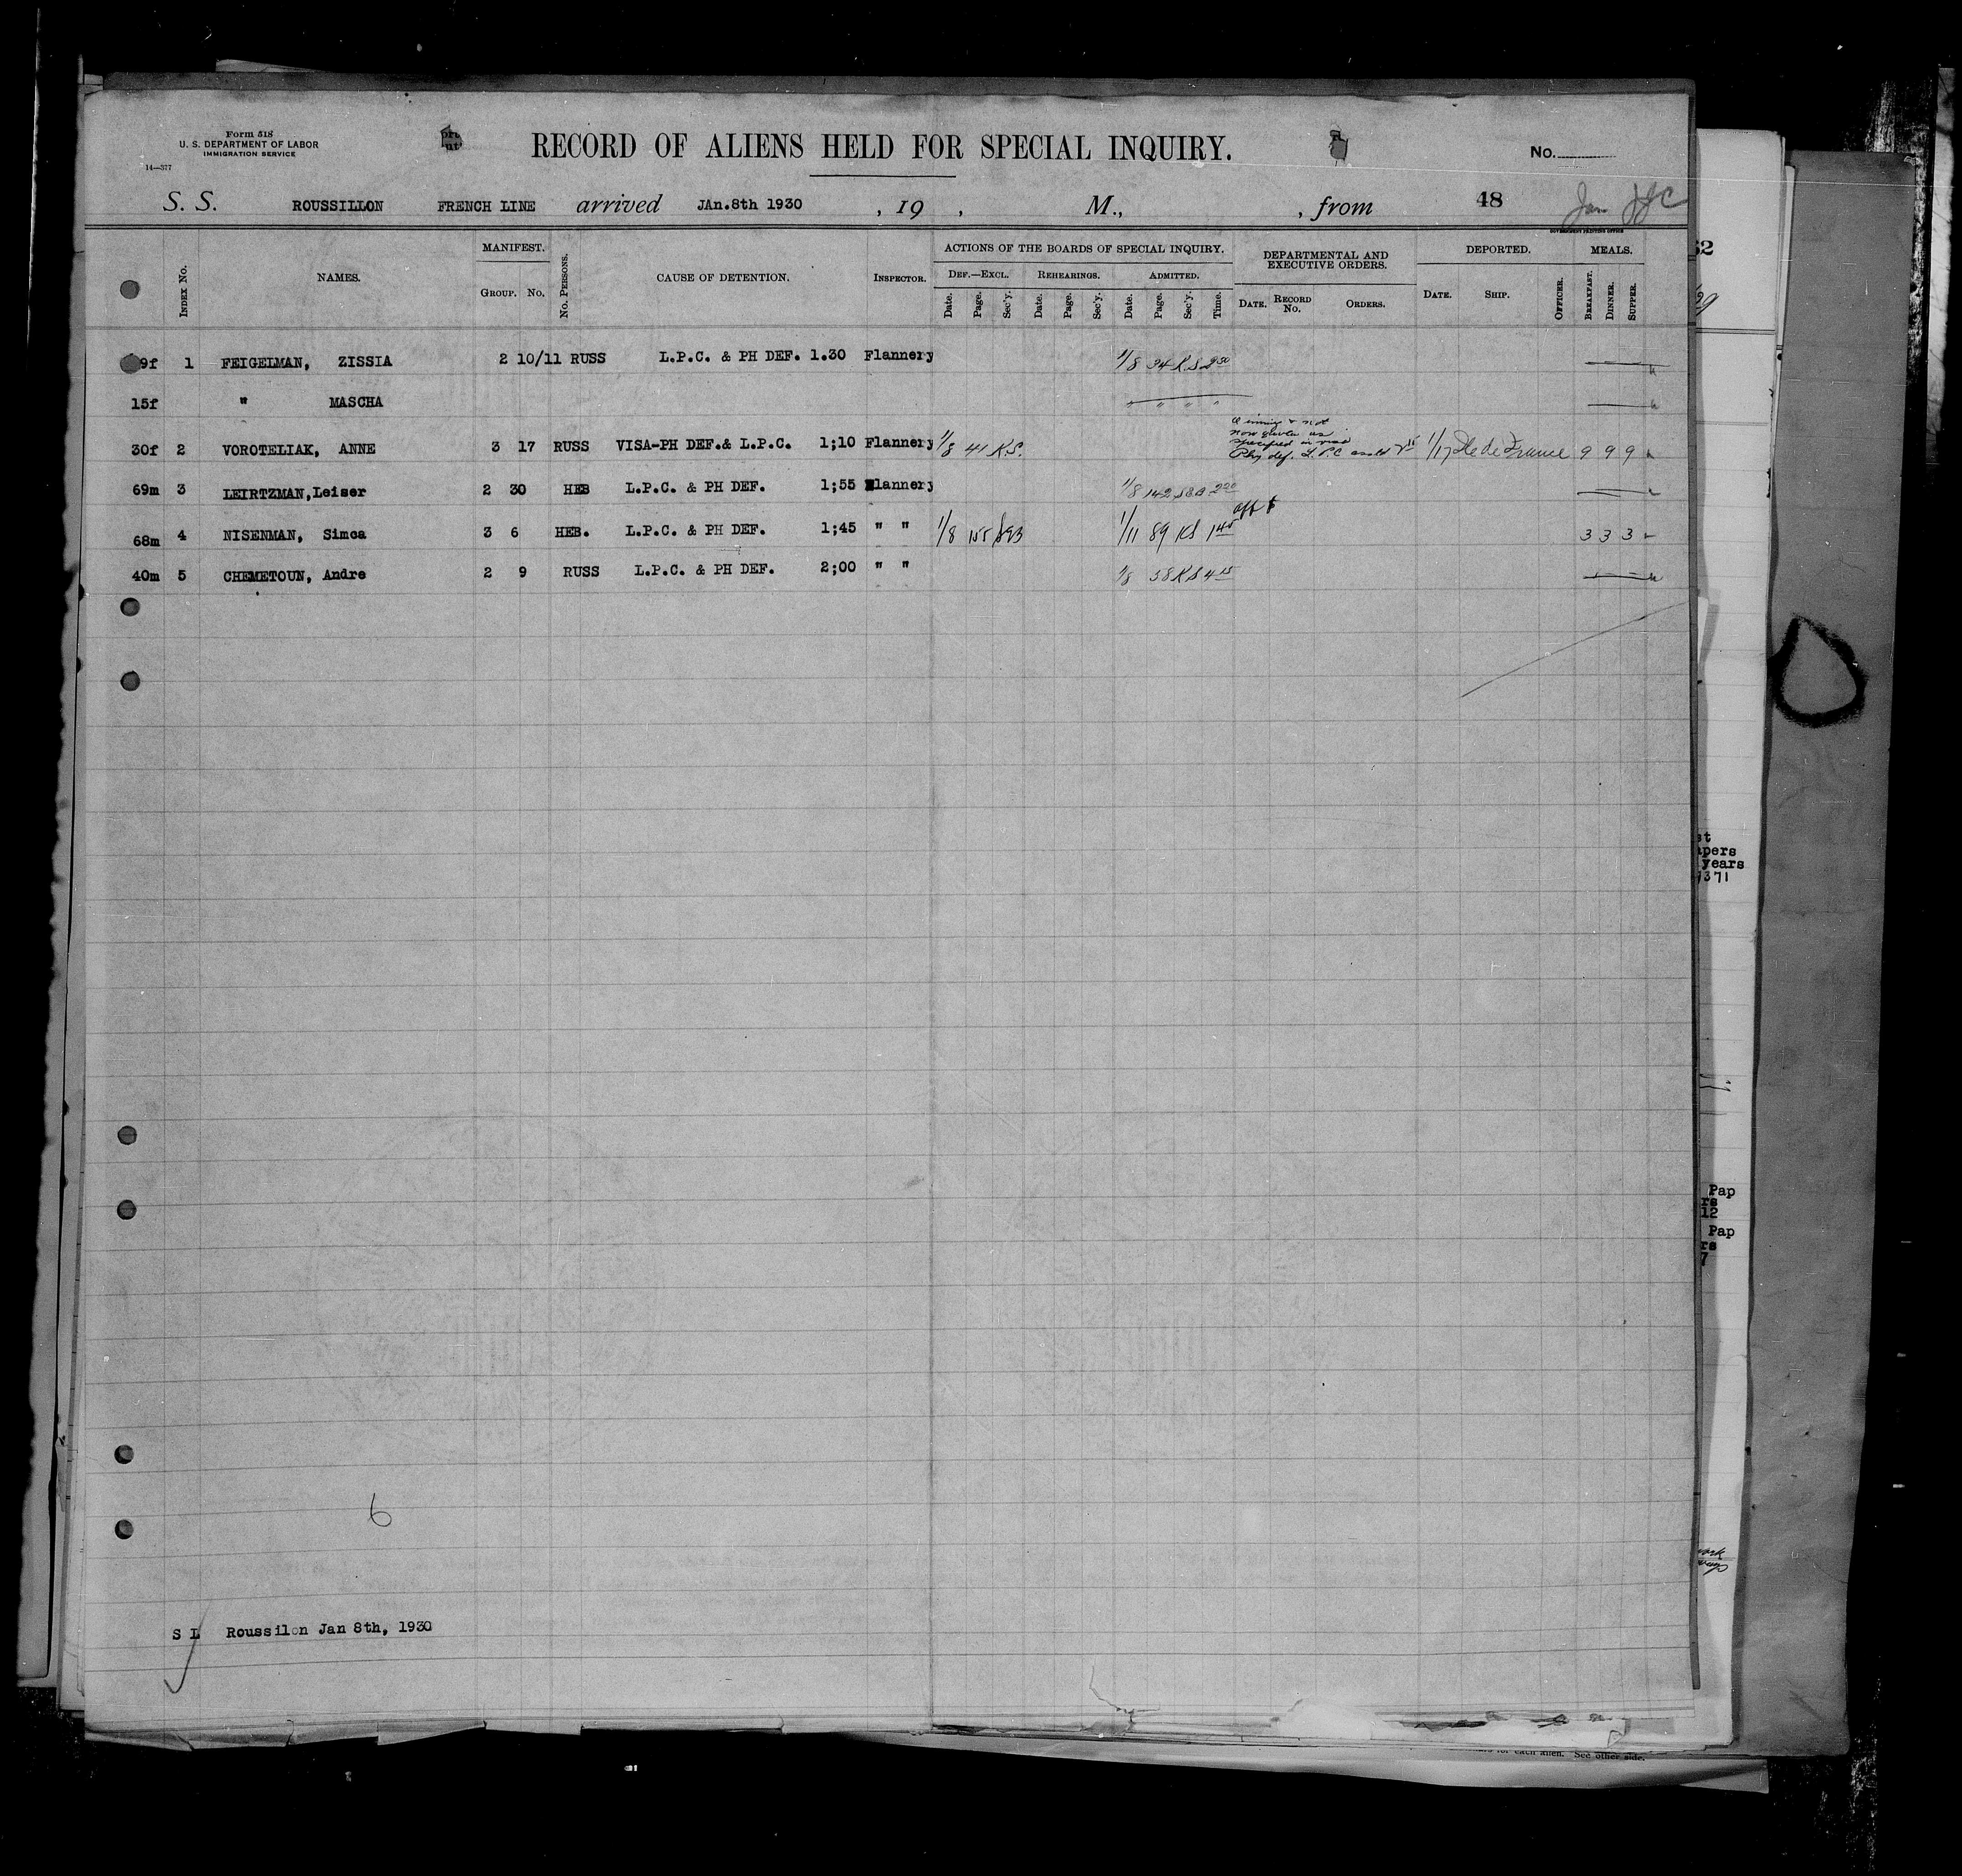 Form 518
U. S. DEPARTMENT OF LABOR
IMMIGRATION SERVICE
14—377
RECORD OF ALIENS HELD FOR SPECIAL INQUIRY.
No.
S. S. ROUSSILLON FRENCH LINE arrived JAn.8th 1930 , 19 , M., , from 48 Jan
GOVERNMENT PRINTING OFFICE
INDEX No. NAMES. MANIFEST. GROUP. No. No. PERSONS. CAUSE OF DETENTION. INSPECTOR. ACTIONS OF THE BOARDS OF SPECIAL INQUIRY. DEPARTMENTAL AND EXECUTIVE ORDERS. DEPORTED. MEALS.
DEF.—EXCL. REHEARINGS. ADMITTED.
Date. Page. Sec'y. Date. Page. Sec'y. Date. Page. Sec'y. Time. DATE. RECORD No. ORDERS. DATE. SHIP. OFFICER. BREAKFAST. DINNER. SUPPER.
9f 1 FEIGELMAN, ZISSIA 2 10/11 RUSS L.P.C. & PH DEF. 1.30 Flannery 1/8 34 K.S
15f " MASCHA " " " "
30f 2 VOROTELIAK, ANNE 3 17 RUSS VISA-PH DEF.& L.P.C. 1;10 Flannery 1/8 41 K.S. not non quota as specified in visa Phy def. L.P.C 1/17 Ile de France 9 9 9
69m 3 LEIRTZMAN,Leiser 2 30 HEB L.P.C. & PH DEF. 1;55 Flannery 1/8 142 2 20
68m 4 NISENMAN, Simca 3 6 HEB. L.P.C. & PH DEF. 1;45 " " 1/8 155 1/11 89 KS 1 45 3 3 3
40m 5 CHEMETOUN, Andre 2 9 RUSS L.P.C. & PH DEF. 2;00 " " 1/8 58 K S 4 15
6
S L Roussilon Jan 8th, 1930
52
apers
years
1371
Pap
rs
12
Pap
rs
7
for each alien. See other side.